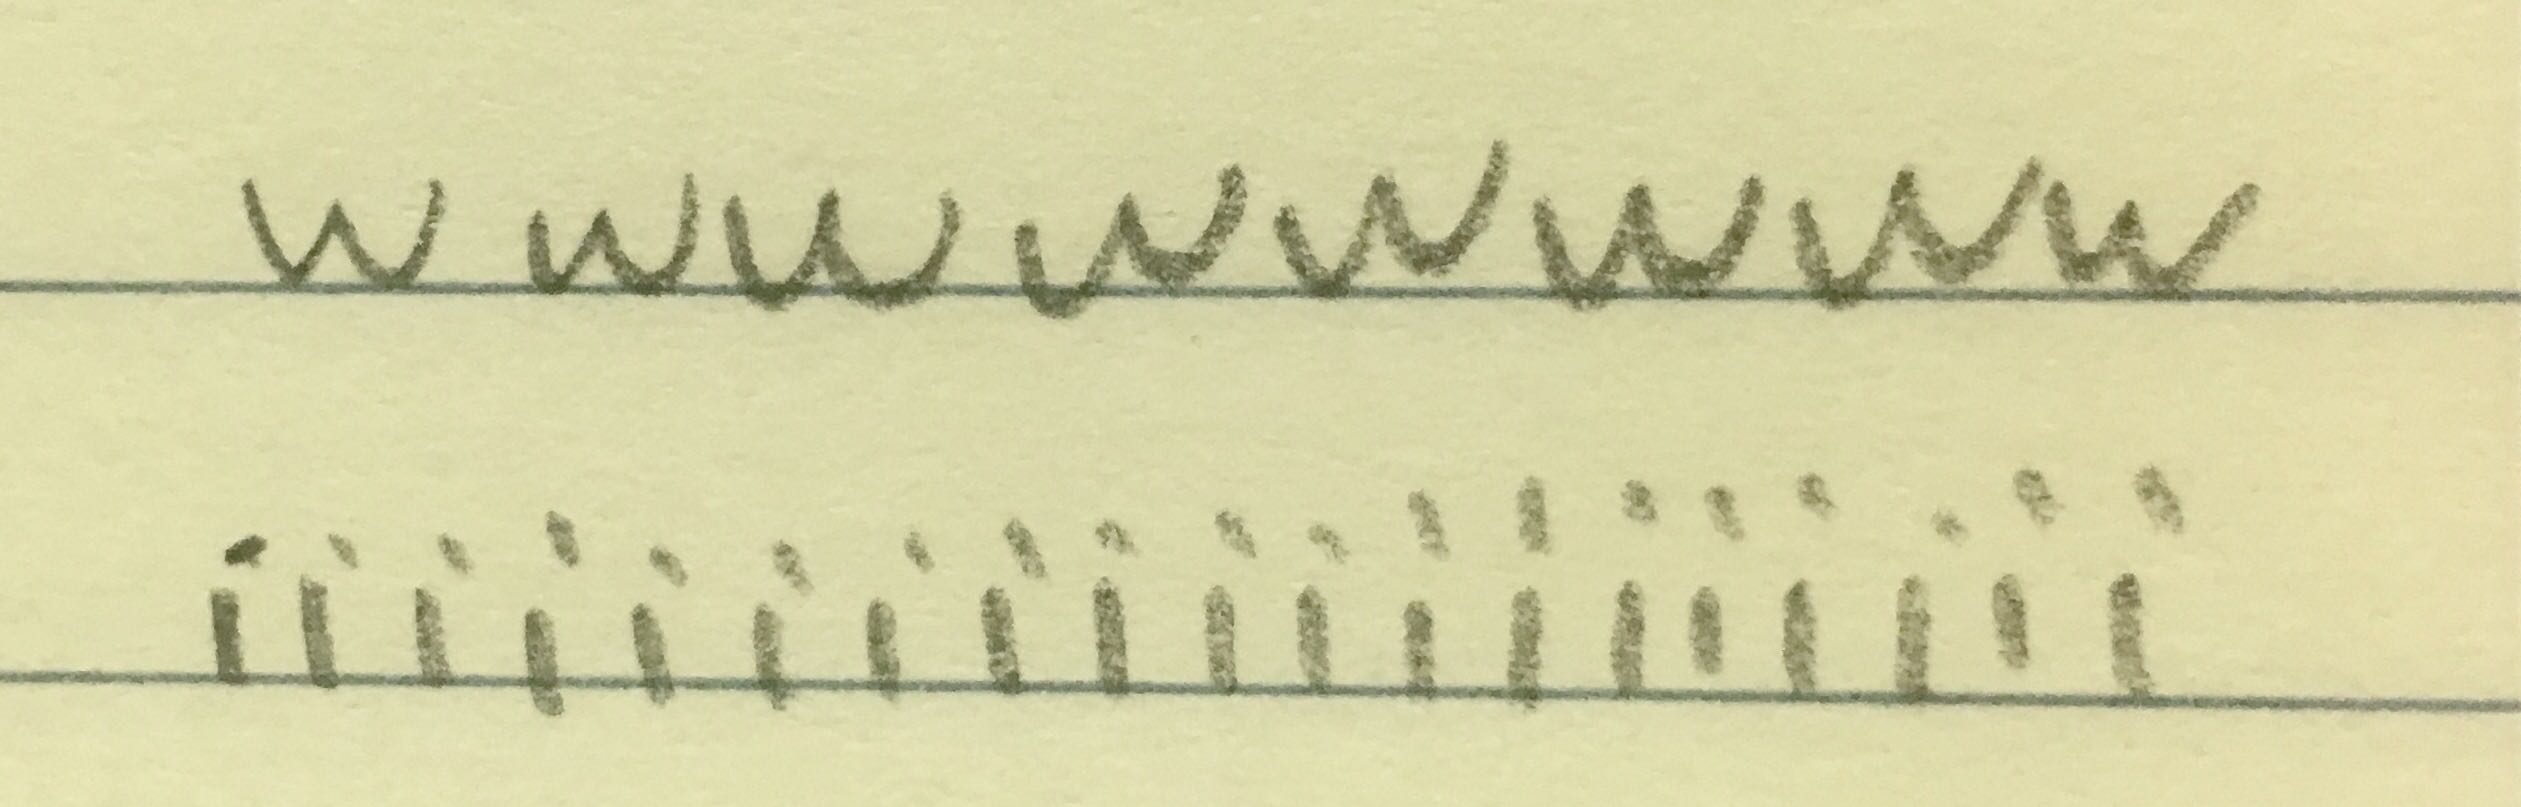 w w w w w w w w
i i i i i i i i i i i i i i i i i i i